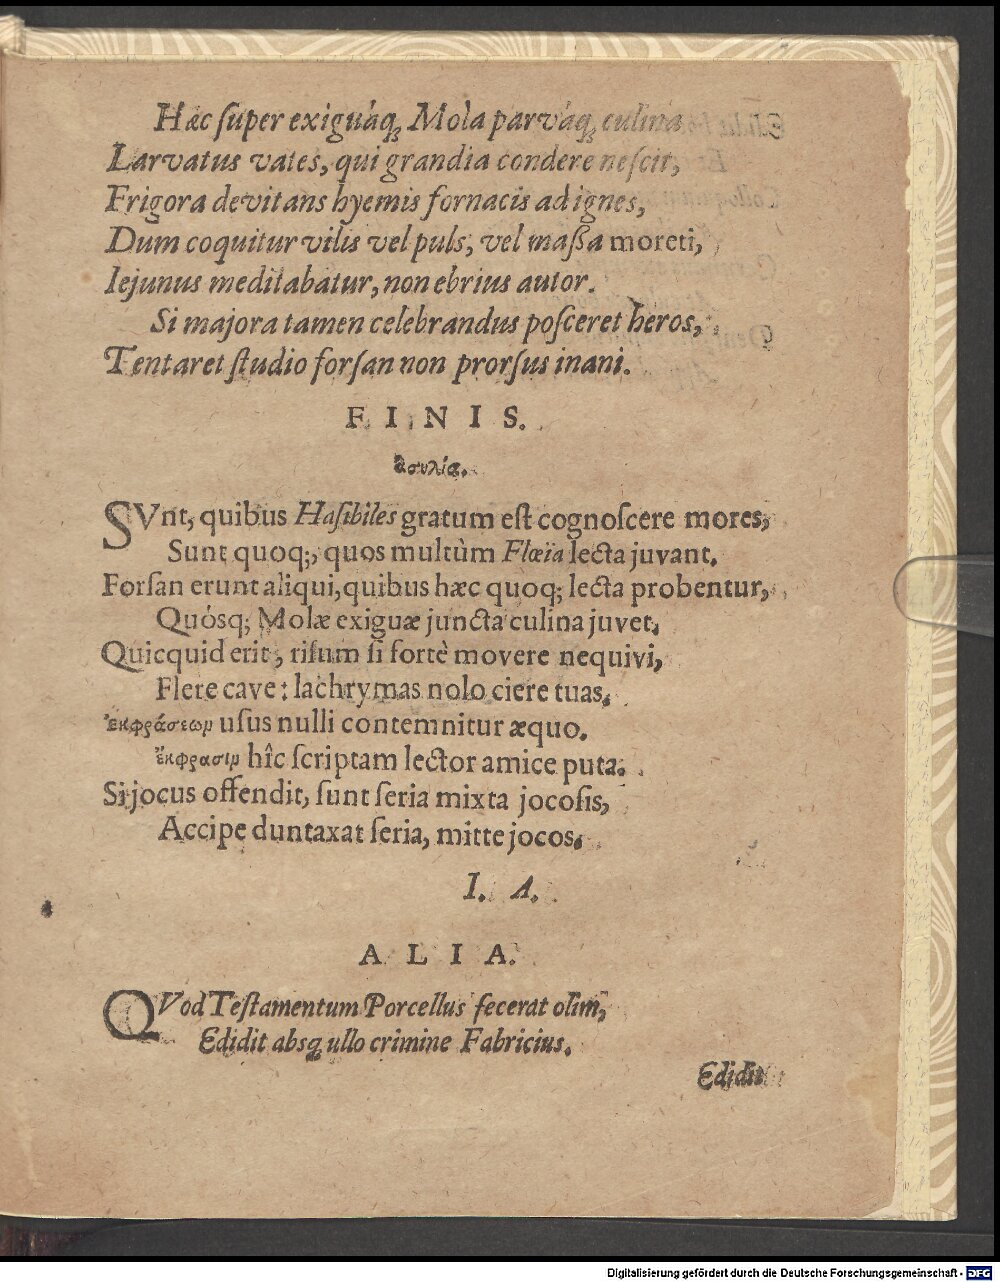 Hæc ſuper exiguáq́ꝫ Mola parváq́ꝫ culina
Larvatus vates, qui grandia condere neſcit,
Frigora devitans hyemis fornacis ad ignes,
Dum coquitur vilis vel puls, vel maſſa moreti,
Iejunus meditabatur, non ebrius autor.
Si majora tamen celebrandus poſceret heros,
Tentaret ſtudio forſan non prorſus inani.
F I N I S.
SVnt, quibus Haſibiles gratum eſt cognoſcere mores,
Sunt quoq;, quos multùm Flœïa lecta juvant.
Forſan erunt aliqui, quibus hæc quoq; lecta probentur,
Quósq; Molæ exiguæ juncta culina juvet,
Quicquid erit, riſum ſi fortè movere nequivi,
Flere cave: lachrymas nolo ciere tuas.
ἐκφράσεων uſus nulli contemnitur æquo.
ἔκφρασιν hîc ſcriptam lector amice puta.
Si jocus offendit, ſunt ſeria mixta jocoſis,
Accipe duntaxat ſeria, mitte jocos.
I. A.
A L I A.
QVod Teſtamentum Porcellus fecerat olim,
Edidit absqꝫ ullo crimine Fabricius.
Edidit
Digitalisierung gefördert durch die Deutsche Forschungsgemeinschaft - DFG